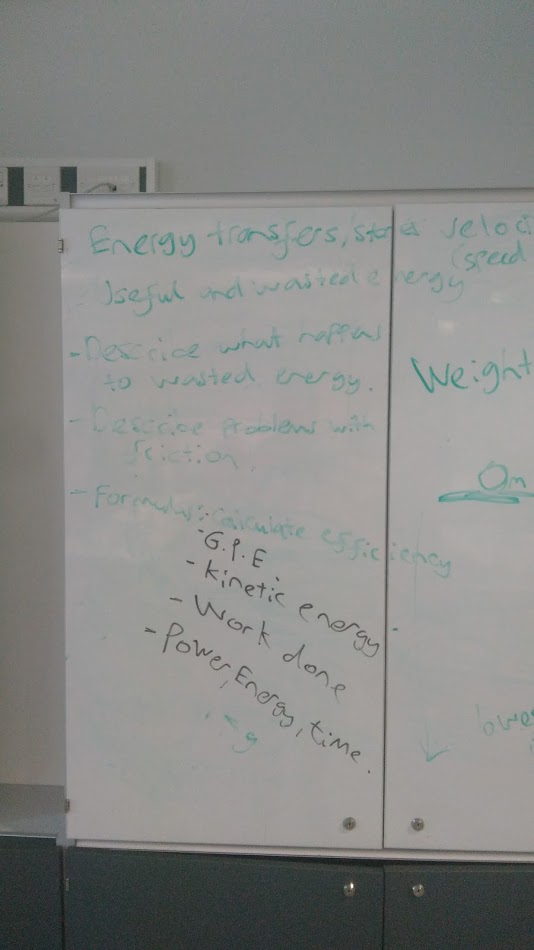 Energy transfers, stores
Useful and wasted energy
- Describe what happens
to wasted energy.
- Describe problems with
friction.
- Formulas: Calculate efficiency
- G.P.E
- Kinetic energy
- Work done
- Power, Energy, time.
veloci
(speed
Weight
On
lowe